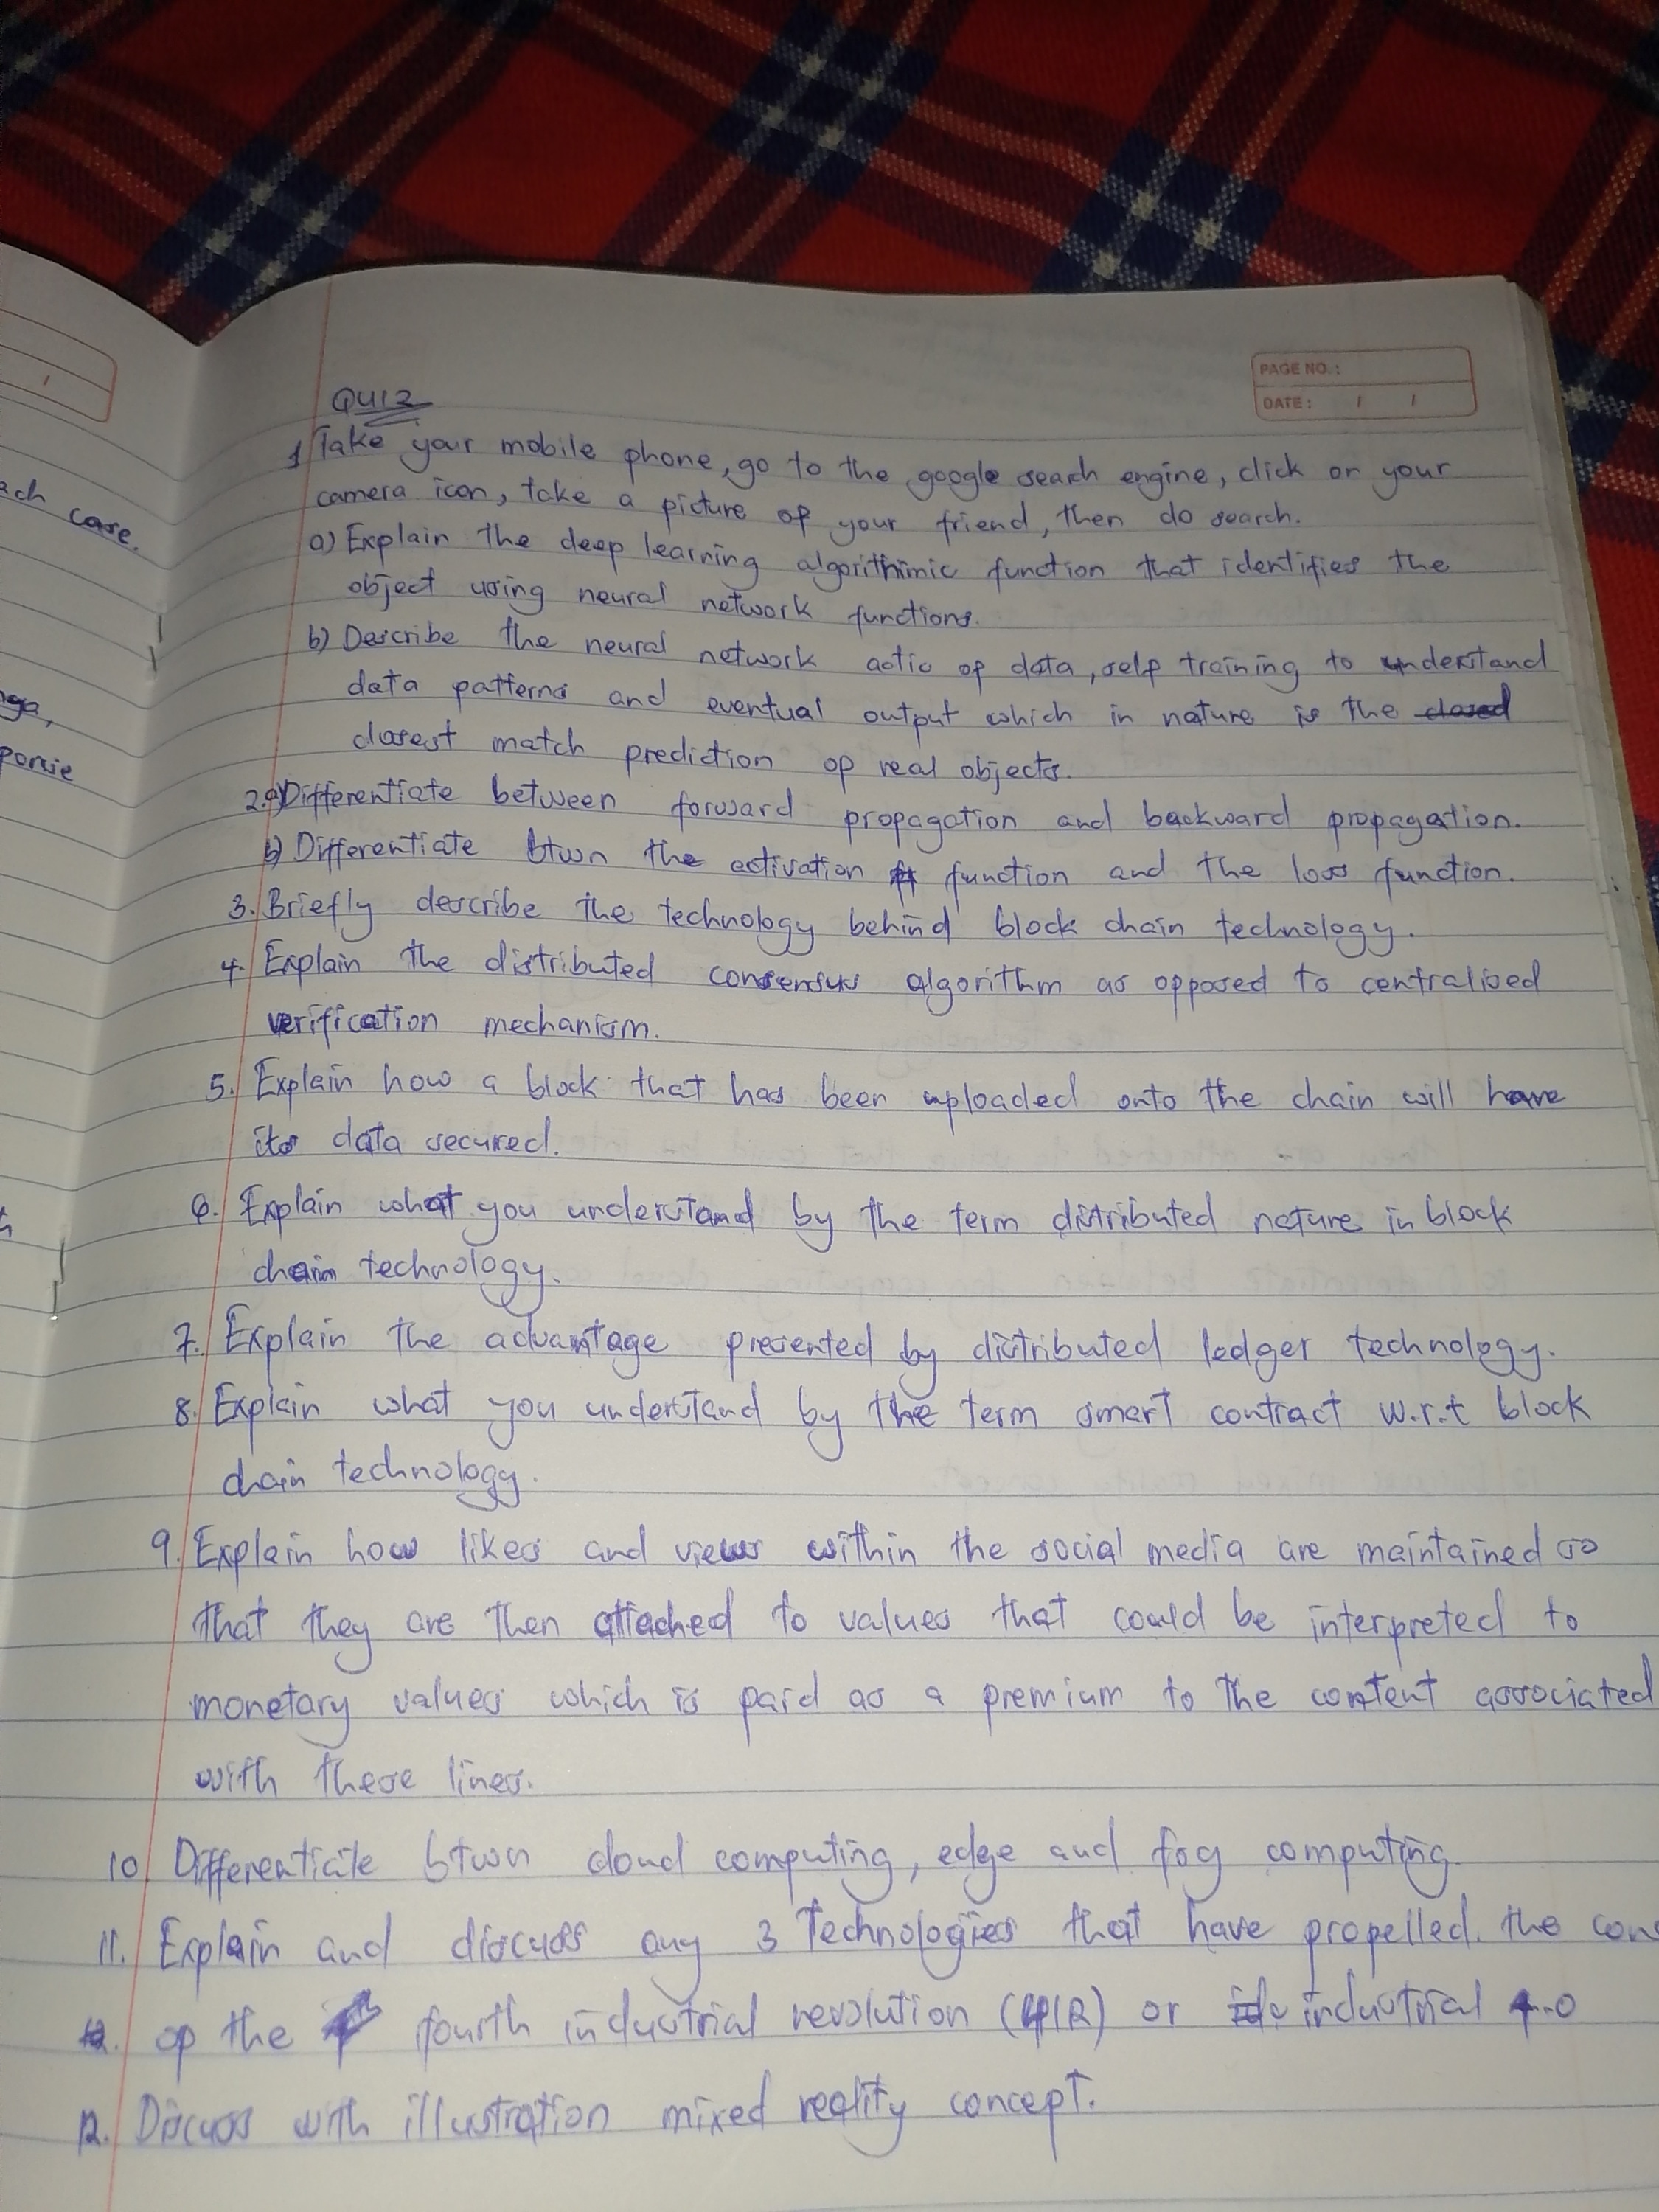 PAGE NO.:
DATE: / /
QUIZ
1 Take your mobile phone, go to the google search engine, click on your
camera icon, take a picture of your friend, then do search.
a) Explain the deep learning algorithimic function that identifies the
object using neural network functions.
b) Describe the neural network of data, self training to understand
data patterns and eventual output which in nature is the closed
closest match prediction of real objects.
2.a) Differentiate between forward propagation and backward propagation.
b) Differentiate btwn the activation function and the loss function.
3. Briefly describe the technology behind block chain technology.
4. Explain the distributed consensus algorithm as opposed to centralised
verification mechanism.
5. Explain how a block that has been uploaded onto the chain will have
its data secured.
6. Explain what you understand by the term distributed nature in block
chain technology.
7. Explain the advantage presented by distributed ledger technology.
8. Explain what you understand by the term smart contract w.r.t block
chain technology.
9. Explain how likes and views within the social media are maintained so
that they are then attached to values that could be interpreted to
monetary values which is paid as a premium to the content associated
with these lines.
10. Differentiate btwn cloud computing, edge and fog computing.
11. Explain and discuss any 3 Technologies that have propelled the
12. of the fourth industrial revolution (4IR) or industrial 4.0
12. Discuss with illustration mixed reality concept.
ach case.